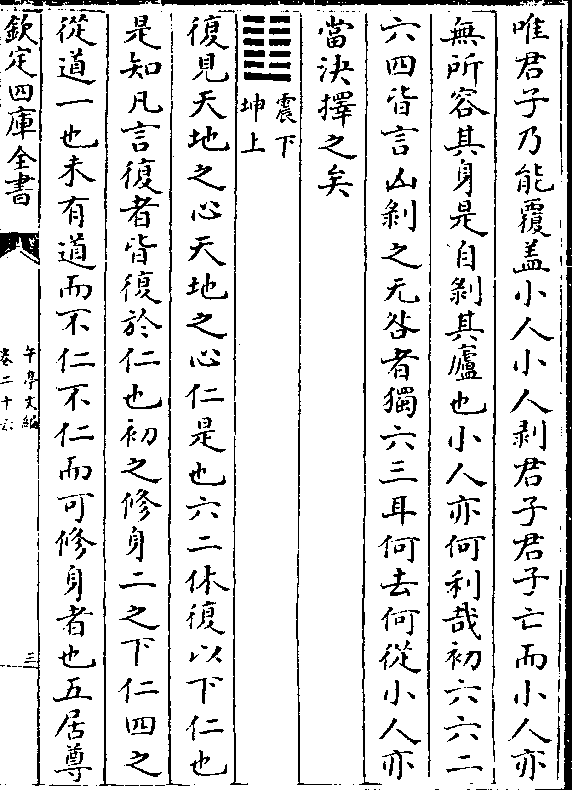 唯君子乃能覆盖小人小人剥君子君子亡而小人亦
無所容其身是自剥其廬也小人亦何利哉初六六二
六四皆言凶剥之无咎者獨六三耳何去何從小人亦
當決擇之矣
震下
坤上
復見天地之心天地之心仁是也六二休復以下仁也
是知凡言復者皆復於仁也初之修身二之下仁四之
從道一也未有道而不仁不仁而可修身者也五居尊
欽定四庫全書
午亭文編
卷二十六
三